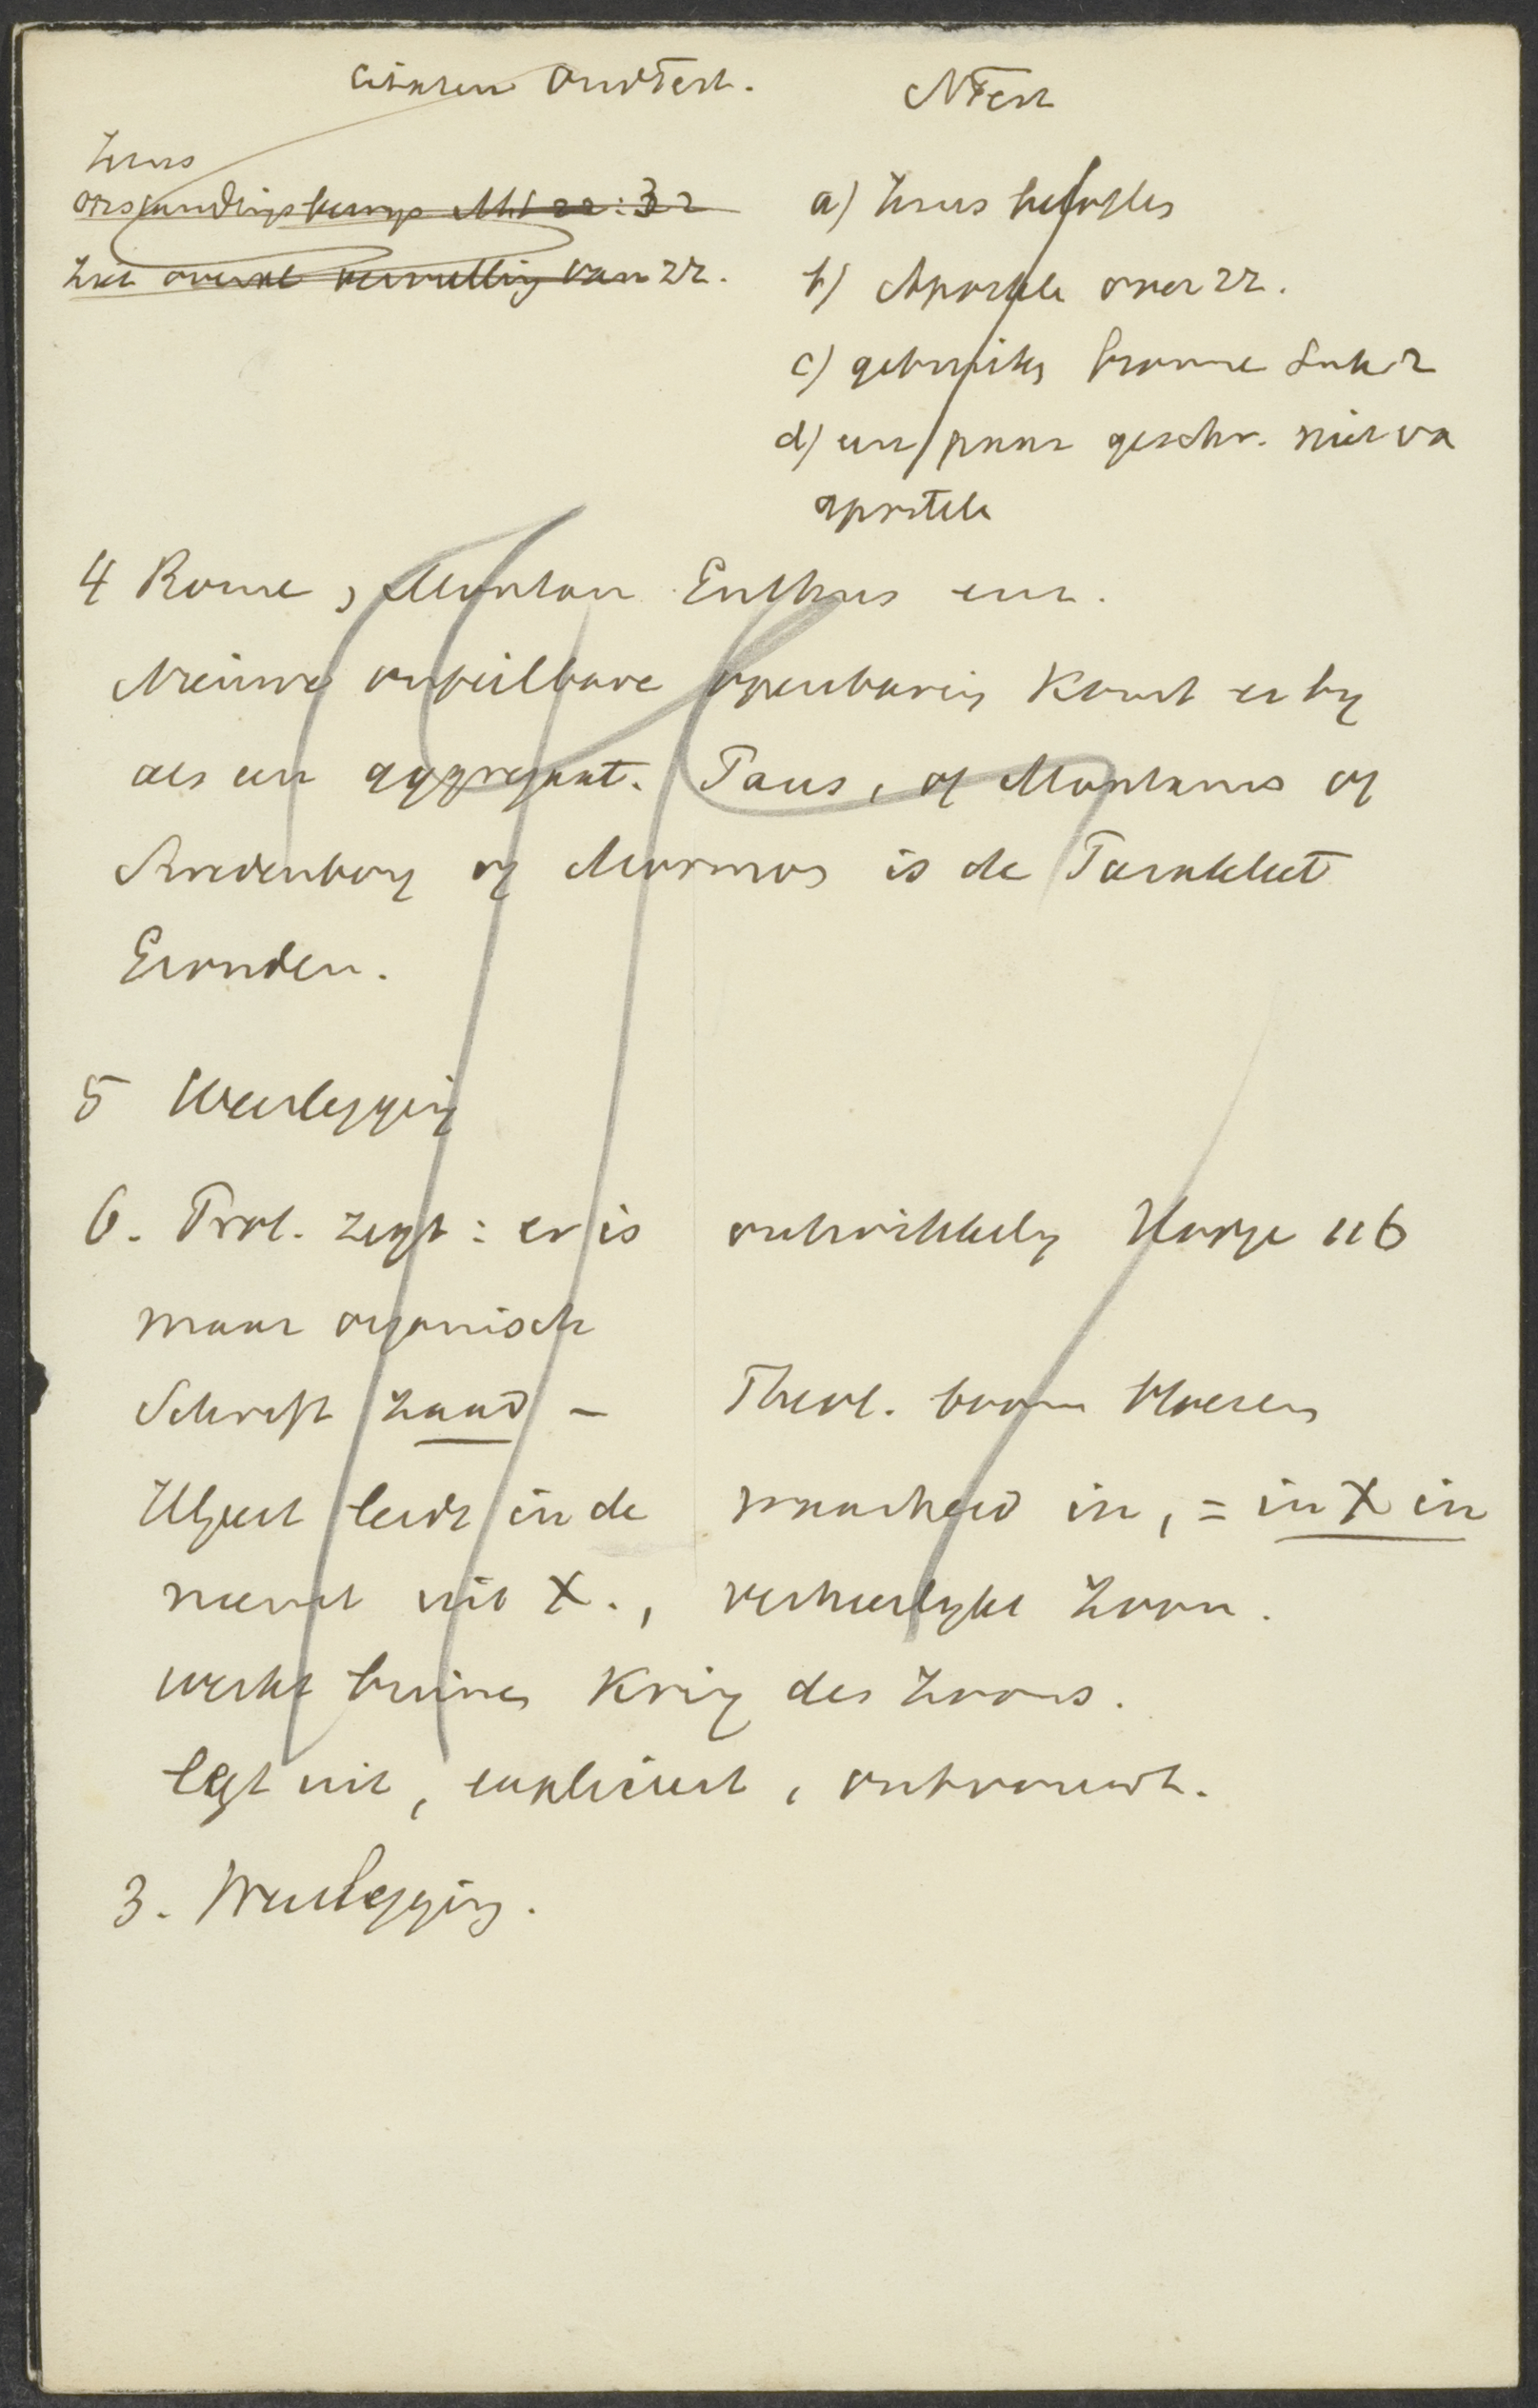 citaten OudTest.
NTest
Jezus
opstandingsbewijs Mt 22:32
Ziet overal vervulling van zz.
a) Jezus beloften
b) Apostele over zz.
c) gebruiken bronne Luk. 2
d) een paar geschr. niet va
apostele
4 Rome, Montan Enthus enz.
Nieuwe onfeilbare openbaring komt er by
als een aggregaat. Paus, of Montanus of
Swedenborg of Mormon is de Parakleet
Gezonden.
5 Weerlegging
6. Prot. zegt: er is ontwikkeling Hodge 116
maar organisch
Schrift zaad - Theol. boom bloesem
HGeest leidt in de waarheid in, = in X in
neemt uit X., verheerlykt Zoon.
werkt binnen Kring des Zoons.
legt uit, expliceert, ontvouwt.
3. Weerlegging.